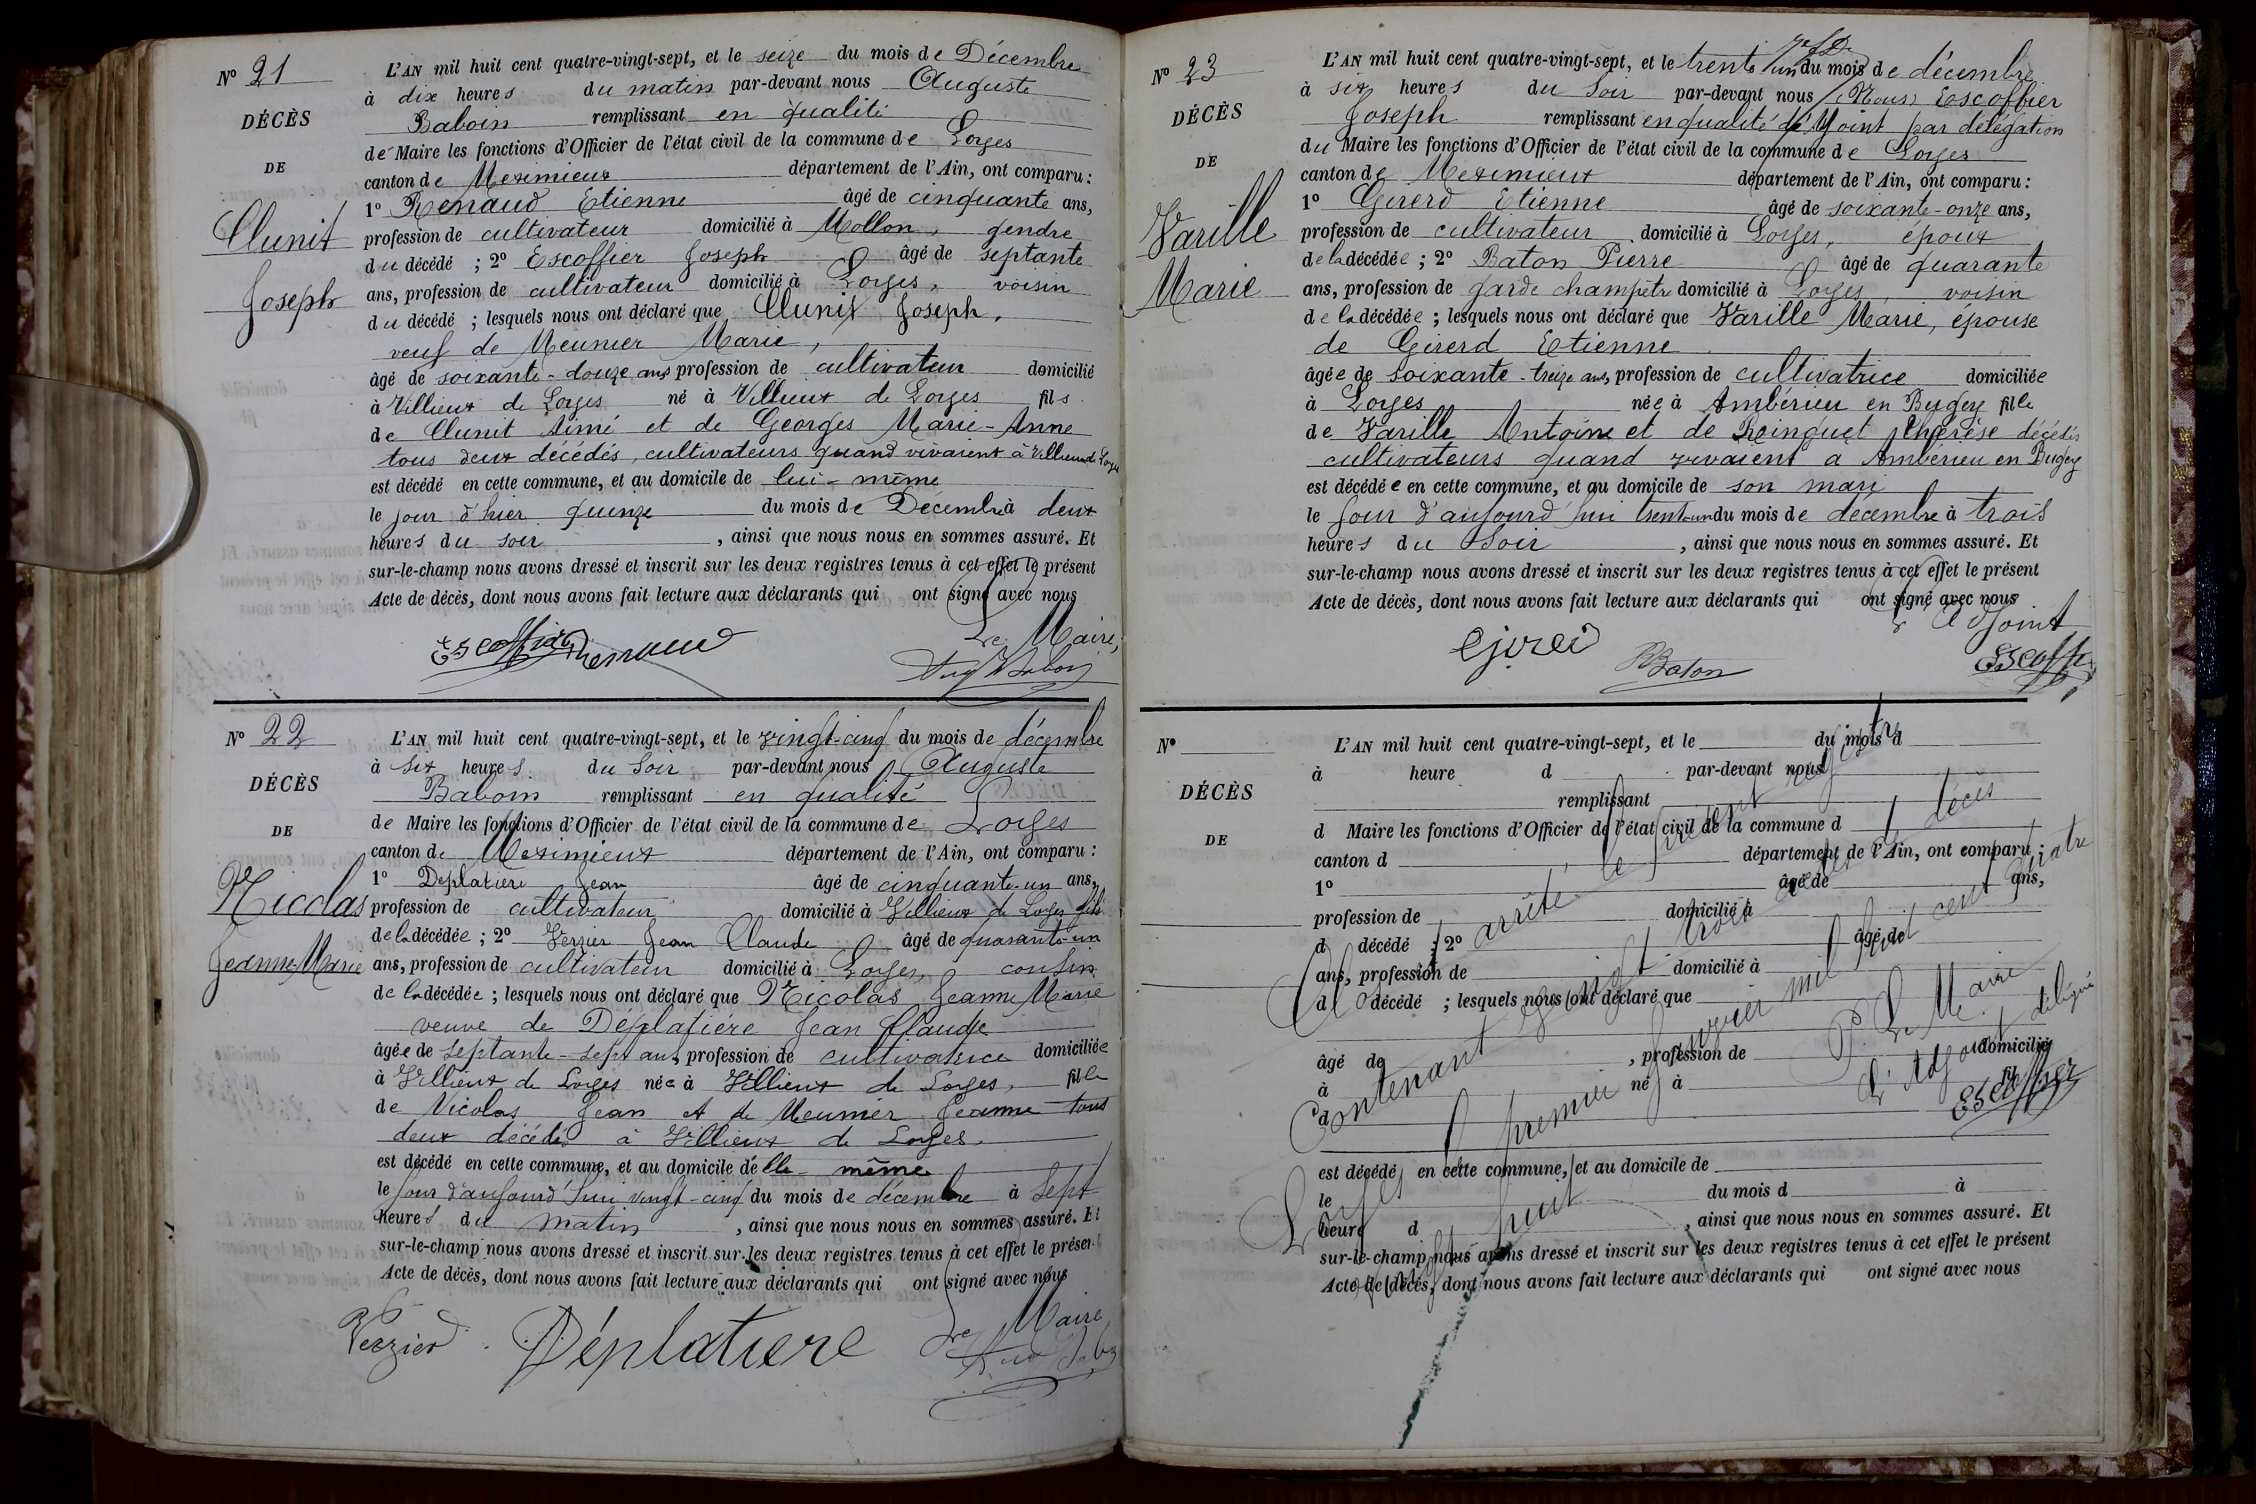 N° 21
DÉCÈS
DE
Clunit
Joseph
L'AN mil huit cent quatre-vingt-sept, et le seize du mois de Décembre
à dix heures du matin par-devant nous Auguste
Baboin remplissant en qualité
de Maire les fonctions d'Officier de l'état civil de la commune de Loyes
canton de Meximieux département de l'Ain, ont comparu :
1° Renaud Etienne âgé de cinquante ans,
profession de cultivateur domicilié à Mollon, gendre
du décédé ; 2° Escoffier Joseph âgé de septante
ans, profession de cultivateur domicilié à Loyes, voisin
du décédé ; lesquels nous ont déclaré que Clunit Joseph,
veuf de Meunier Marie,
âgé de soixante-douze ans profession de cultivateur domicilié
à Villieux de Loyes né à Villieux de Loyes fils
de Clunit Aimé et de Georges Marie-Anne
tous deux décédés, cultivateurs quand vivaient à Villieux de Loyes
est décédé en cette commune, et au domicile de lui-même
le jour d'hier quinze du mois de Décembre à deux
heures du soir, ainsi que nous nous en sommes assuré. Et
sur-le-champ nous avons dressé et inscrit sur les deux registres tenus à cet effet le présent
Acte de décès, dont nous avons fait lecture aux déclarants qui ont signé avec nous
Le Maire,
Escoffier Renaud
Aug Baboin
N° 22
DÉCÈS
DE
Nicolas
Jeanne Marie
L'AN mil huit cent quatre-vingt-sept, et le vingt-cinq du mois de décembre
à six heures du soir par-devant nous Auguste
Baboin remplissant en qualité
de Maire les fonctions d'Officier de l'état civil de la commune de Loyes
canton de Meximieux département de l'Ain, ont comparu :
1° Déplatière Jean âgé de cinquante-un ans,
profession de cultivateur domicilié à Villieux de Loyes fils
de la décédée ; 2° Verzier Jean Claude âgé de quarante-un
ans, profession de cultivateur domicilié à Loyes, cousin
de la décédée ; lesquels nous ont déclaré que Nicolas Jeanne Marie
veuve de Déplatière Jean Claude
âgée de septante-sept ans, profession de cultivatrice domiciliée
à Villieux de Loyes née à Villieux de Loyes, fille
de Nicolas Jean et de Meunier Jeanne tous
deux décédés à Villieux de Loyes.
est décédé en cette commune, et au domicile d'elle-même
le jour d'aujourd'hui vingt-cinq du mois de décembre à sept
heures du matin, ainsi que nous nous en sommes assuré. Et
sur-le-champ nous avons dressé et inscrit sur les deux registres tenus à cet effet le présent
Acte de décès, dont nous avons fait lecture aux déclarants qui ont signé avec nous
Le Maire
Verzier Déplatiere
N° 23
DÉCÈS
DE
Varille
Marie
L'AN mil huit cent quatre-vingt-sept, et le trente un du mois de décembre
à six heures du soir par-devant nous (Nous) Escoffier
Joseph remplissant en qualité d'Adjoint par délégation
du Maire les fonctions d'Officier de l'état civil de la commune de Loyes
canton de Meximieux département de l'Ain, ont comparu :
1° Girerd Etienne âgé de soixante-onze ans,
profession de cultivateur domicilié à Loyes, époux
de la décédée ; 2° Baton Pierre âgé de quarante
ans, profession de garde champêtre domicilié à Loyes, voisin
de la décédée ; lesquels nous ont déclaré que Varille Marie, épouse
de Girerd Etienne
âgée de soixante-treize ans, profession de cultivatrice domiciliée
à Loyes née à Ambérieu en Bugey fille
de Varille Antoine et de Reinguet Thérèse décédés
cultivateurs quand vivaient à Ambérieu en Bugey
est décédée en cette commune, et au domicile de son mari
le jour d'aujourd'hui trent-un du mois de décembre à trois
heures du soir, ainsi que nous nous en sommes assuré. Et
sur-le-champ nous avons dressé et inscrit sur les deux registres tenus à cet effet le présent
Acte de décès, dont nous avons fait lecture aux déclarants qui ont signé avec nous
L'Adjoint
PBaton
Escoffier
N°
DÉCÈS
DE
L'AN mil huit cent quatre-vingt-sept, et le du mois d
à heure d par-devant nous
remplissant
d Maire les fonctions d'Officier de l'état civil de la commune d
canton d département de l'Ain, ont comparu :
1° âgé de ans,
profession de domicilié à
d décédé ; 2° âgé de
ans, profession de domicilié à
d décédé ; lesquels nous ont déclaré que
âgé de , profession de domicilié
à né à fil
d
est décédé en cette commune, et au domicile de
le du mois d à
heure d , ainsi que nous nous en sommes assuré. Et
sur-le-champ nous avons dressé et inscrit sur les deux registres tenus à cet effet le présent
Acte de décès, dont nous avons fait lecture aux déclarants qui ont signé avec nous
Clos et arrêté le présent registre
Contenant vingt trois actes de décès
Loyes le premier janvier mil huit cent quatre
vingt huit
P. Le Maire
L'Adjoint délégué
Escoffier